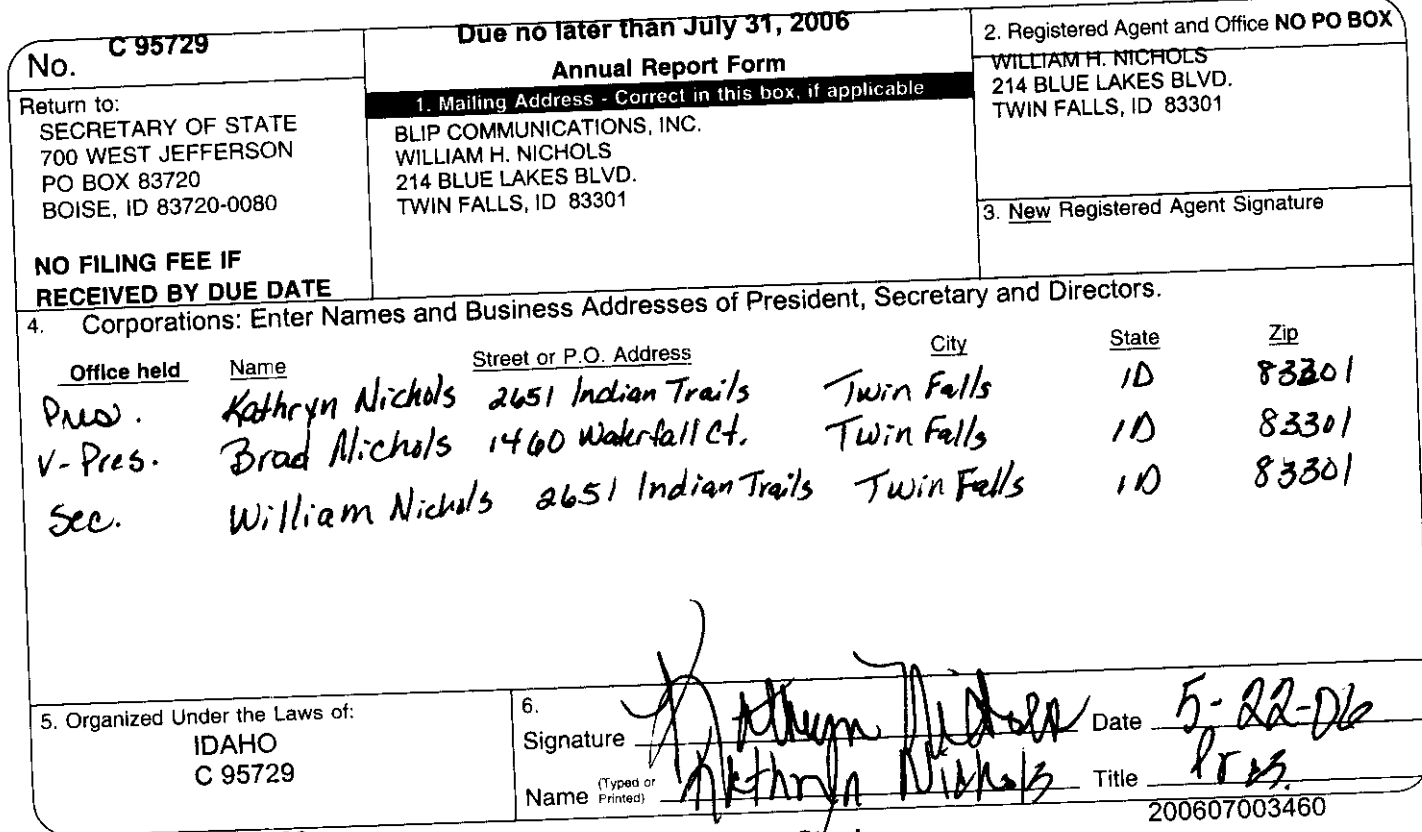 No. C 95729
Return to:
SECRETARY OF STATE
700 WEST JEFFERSON
PO BOX 83720
BOISE, ID 83720-0080
NO FILING FEE IF
RECEIVED BY DUE DATE
Due no later than July 31, 2006
Annual Report Form
1. Mailing Address - Correct in this box, if applicable
BLIP COMMUNICATIONS, INC.
WILLIAM H. NICHOLS
214 BLUE LAKES BLVD.
TWIN FALLS, ID 83301
2. Registered Agent and Office NO PO BOX
WILLIAM H. NICHOLS
214 BLUE LAKES BLVD.
TWIN FALLS, ID 83301
3. New Registered Agent Signature
4. Corporations: Enter Names and Business Addresses of President, Secretary and Directors.
Office held Name Street or P.O. Address City State Zip
Pres. Kathryn Nichols 2651 Indian Trails Twin Falls ID 83301
V-Pres. Brad Nichols 1460 Waterfall Ct. Twin Falls ID 83301
Sec. William Nichols 2651 Indian Trails Twin Falls ID 83301
5. Organized Under the Laws of:
IDAHO
C 95729
6.
Signature Kathryn Nichols Date 5-22-06
Name (Typed or Printed) Kathryn Nichols Title Pres.
200607003460